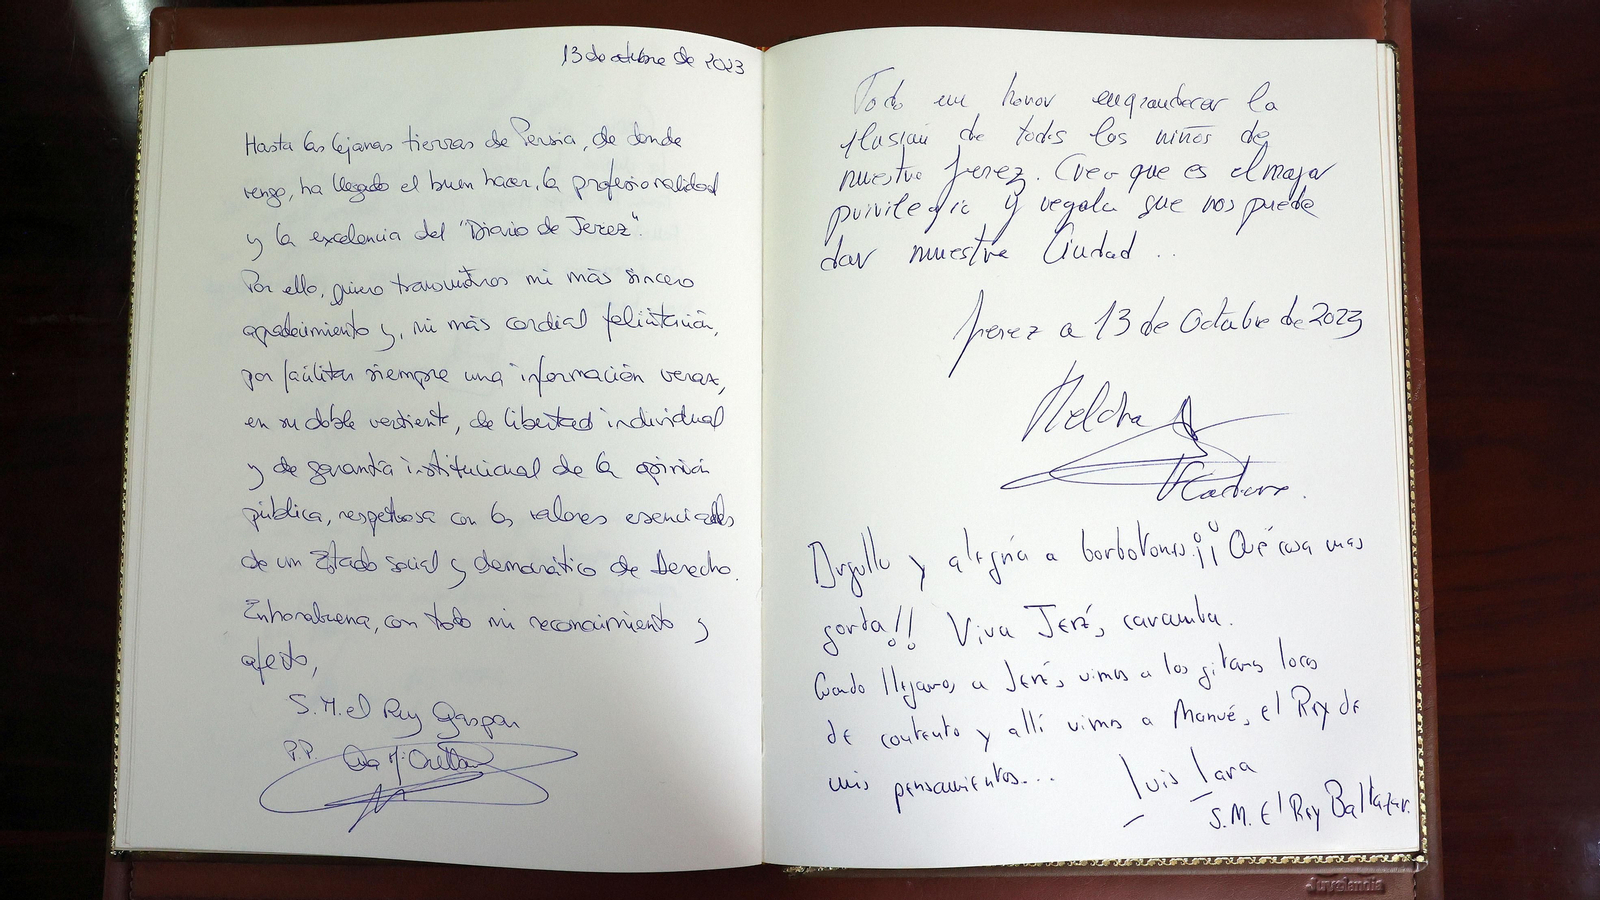 13 de octubre de 2023
Hasta las lejanas tierras de Persia, de donde
vengo, ha llegado el buen hacer, la profesionalidad
y la excelencia del "Diario de Jerez".
Por ello, quiero transmitiros mi más sincero
agradecimiento y, mi más cordial felicitación,
por facilitar siempre una información veraz,
en su doble vertiente, de libertad individual
y de garantía institucional de la opinión
pública, respetuosa con los valores esenciales
de un Estado social y democrático de Derecho.
Enhorabuena, con todo mi reconocimiento y
afecto,
S.M. el Rey Gaspar
P.P.
Todo un honor engrandecer la
ilusión de todos los niños de
nuestro Jerez. Creo que es el mayor
privilegio y regalo que nos puede
dar nuestra Ciudad ..
Jerez a 13 de Octubre de 2023
Melchor
Orgullo y alegría a borbotones. ¡¡Qué cosa mas
gorda!! Viva Jeré, caramba.
Cuando llegamos a Jeré, vimos a los gitanos locos
de contento y allí vimos a Manué, el Rey de
mis pensamientos...
Luis Lara
S.M. El Rey Baltazar.
Juvelandia